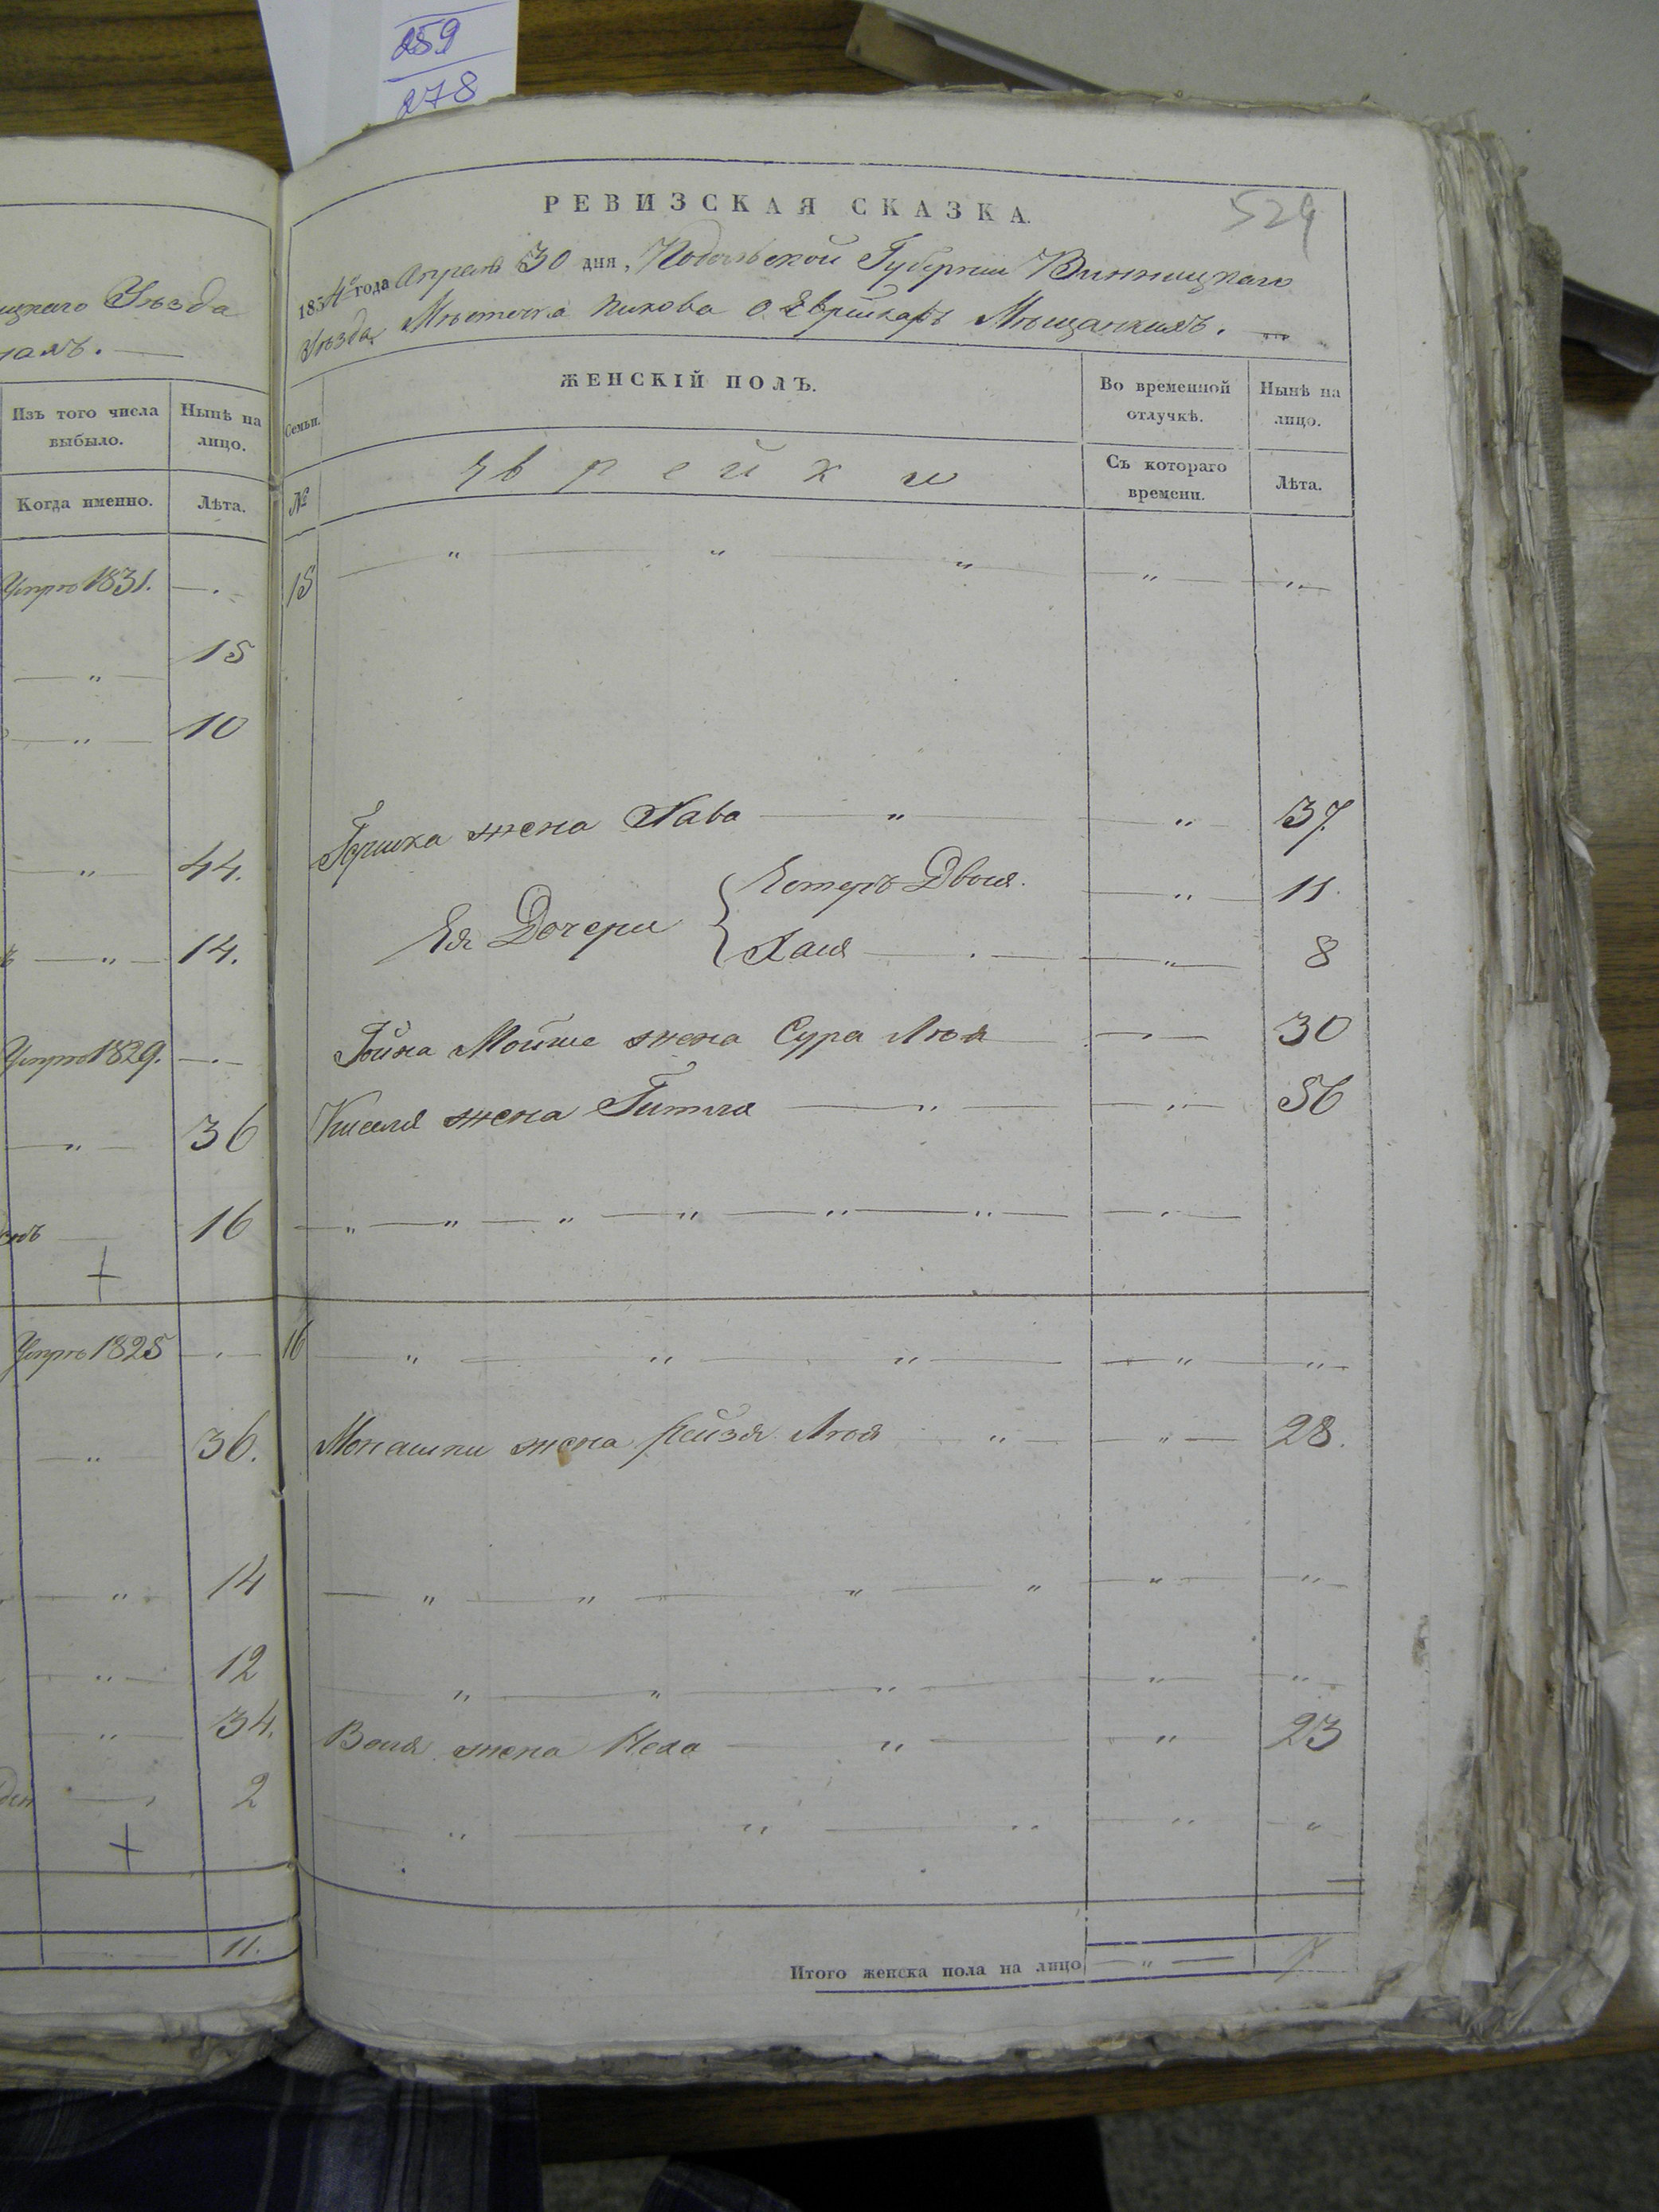 259
278
РЕВИЗСКАЯ СКАЗКА.
529
1834го года Апреля 30 дня, Подольской Губернии Винницкаго
Уѣзда Мѣстечка Пикова о Еврейкахъ Мѣщанкахъ.
ицкаго Уѣзда
Изъ того числа выбыло.
Нынѣ на лицо.
Когда именно.
Лѣта.
Семьи.
ЖЕНСКІЙ ПОЛЪ.
Во временной отлучкѣ.
Нынѣ на лицо.
№
Еврейки
Съ котораго времени.
Лѣта.
Умре 1831. — 15
— " — 15
— " — 10
— " — 44. Гершка жена Хава — " — 37.
Ея Дочери { Естеръ Двося. — " — 11.
— " — 14. Хася — " — 8
Умре 1829. — Гойна Мойше жена Сура Лея — 30
— " — 36 Киселя жена Гитля — " — 56
16
+
Умре 1825 — 16
— " — 36. Монашки жена Рейзя Лея — " — 28.
— " — 14
— " — 12
— " — 34. Воля жена Неха — " — 23
2
+
11.
Итого женска пола на лицо — " — 7